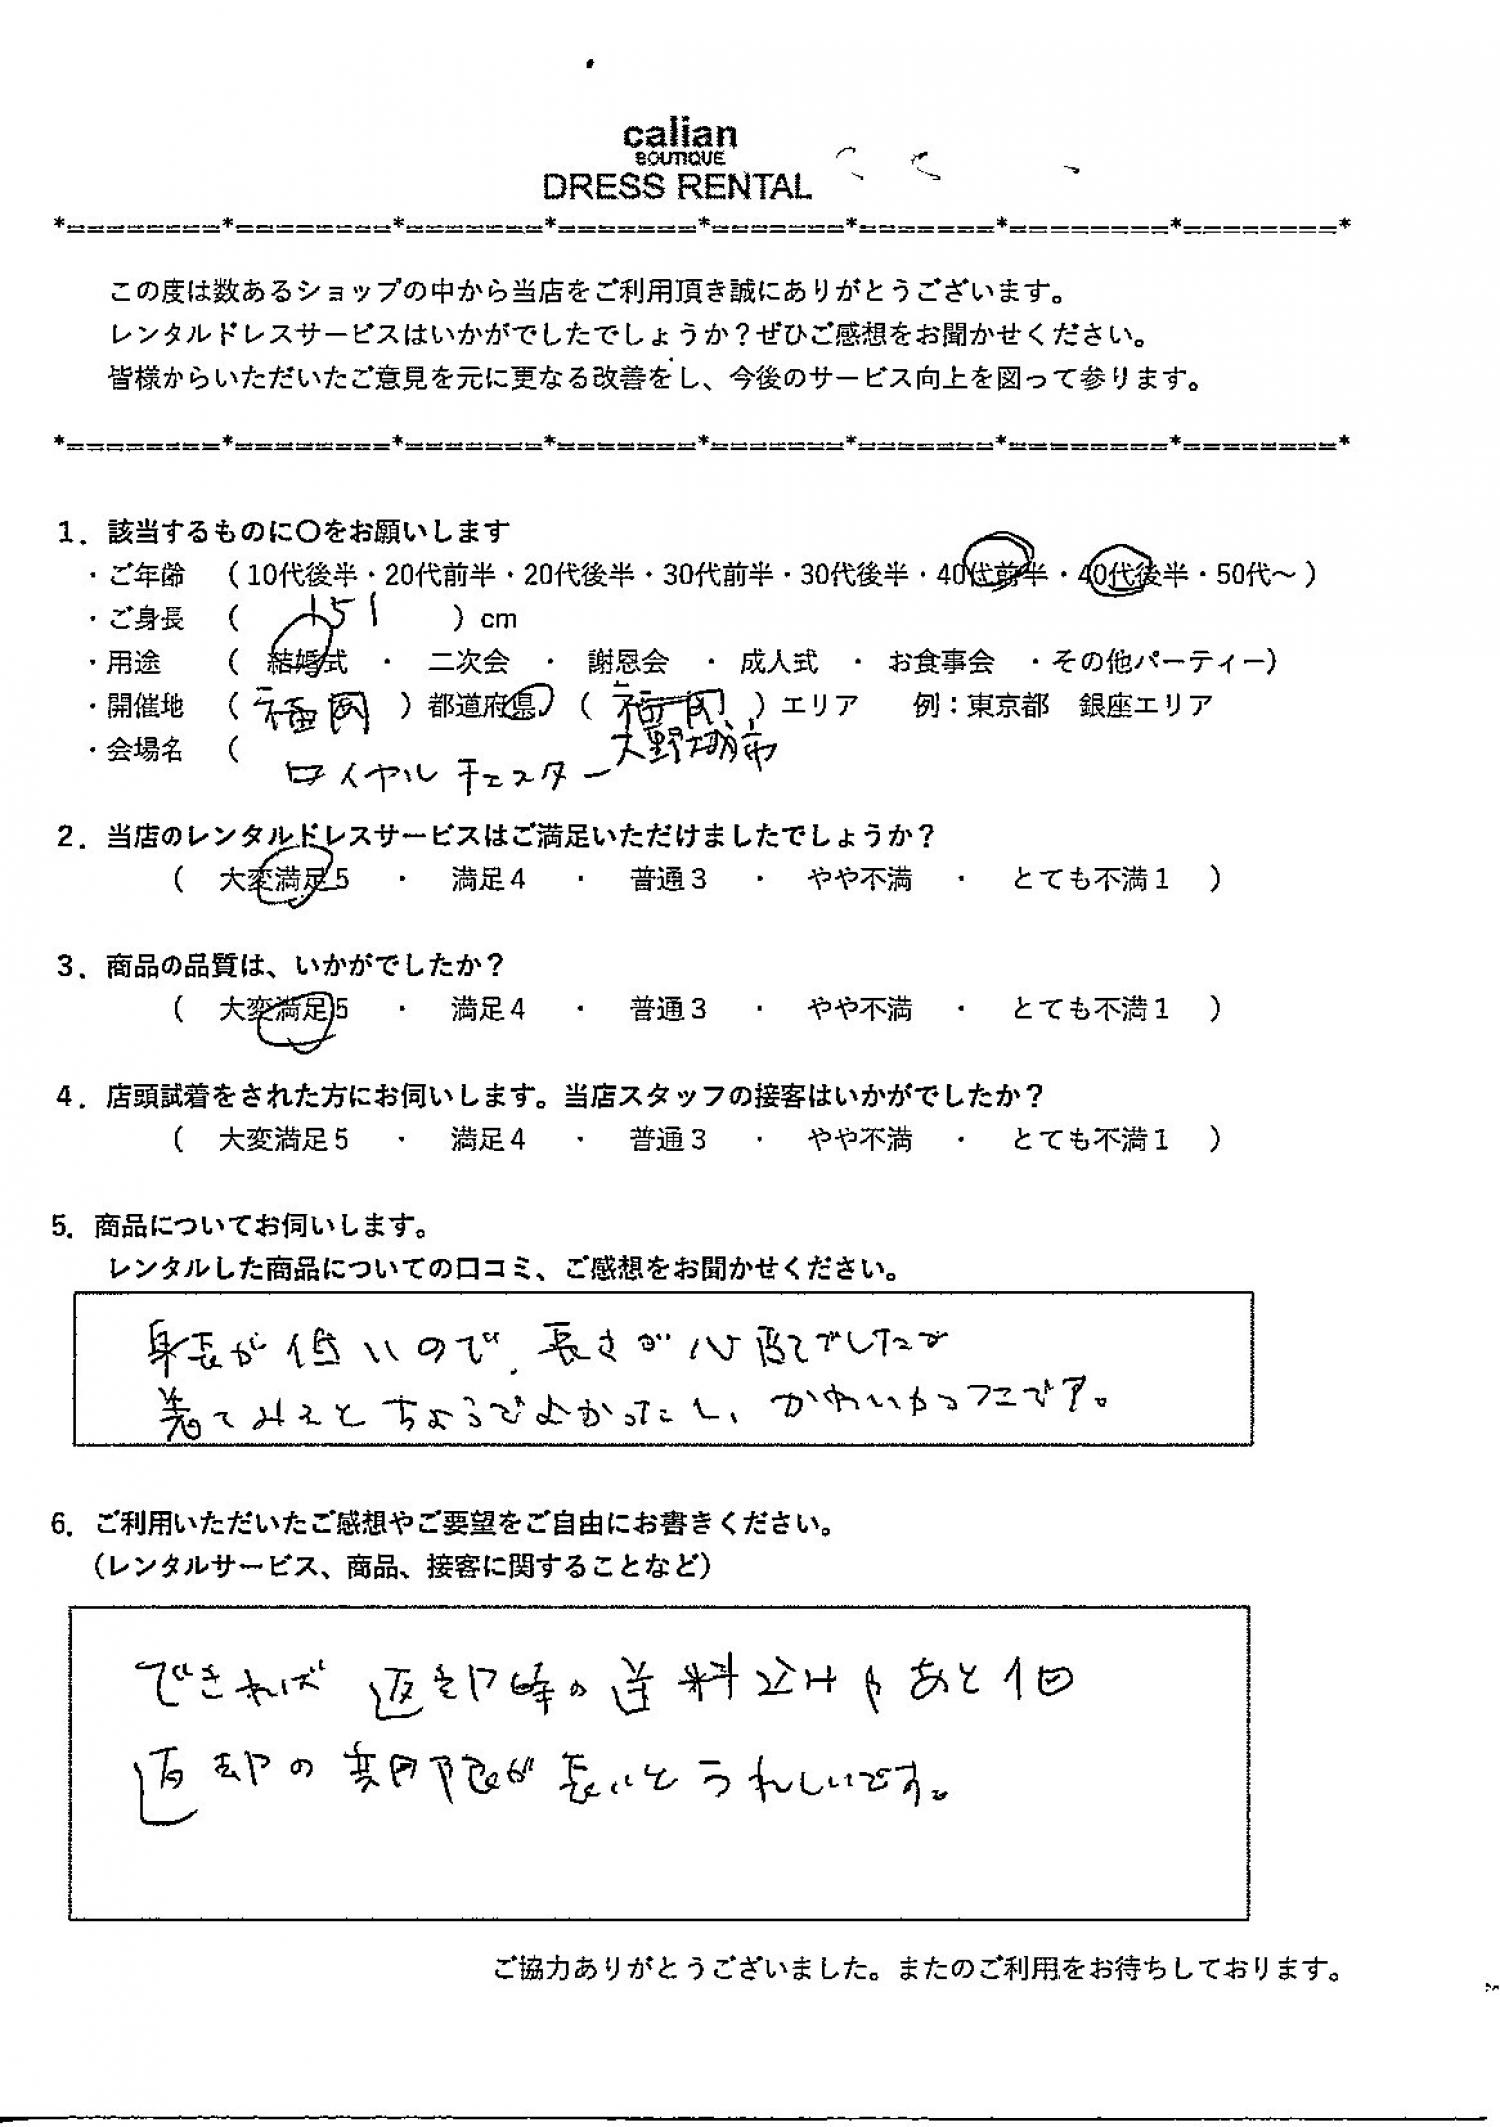 calian
BOUTIQUE
DRESS RENTAL
*========*========*=======*=======*=======*=======*========*========*
この度は数あるショップの中から当店をご利用頂き誠にありがとうございます。
レンタルドレスサービスはいかがでしたでしょうか？ぜひご感想をお聞かせください。
皆様からいただいたご意見を元に更なる改善をし、今後のサービス向上を図って参ります。
*========*========*=======*=======*=======*=======*========*========*
1．該当するものに〇をお願いします
・ご年齢 （10代後半・20代前半・20代後半・30代前半・30代後半・40代前半・40代後半・50代～）
・ご身長 （ 151 ）cm
・用途 （ 結婚式 ・ 二次会 ・ 謝恩会 ・ 成人式 ・ お食事会 ・その他パーティー）
・開催地 （ 福岡 ）都道府県 （ 福岡 ）エリア 例：東京都 銀座エリア
大野城市
・会場名 （
ロイヤルチェスター
2．当店のレンタルドレスサービスはご満足いただけましたでしょうか？
（ 大変満足5 ・ 満足4 ・ 普通3 ・ やや不満 ・ とても不満1 ）
3．商品の品質は、いかがでしたか？
（ 大変満足5 ・ 満足4 ・ 普通3 ・ やや不満 ・ とても不満1 ）
4．店頭試着をされた方にお伺いします。当店スタッフの接客はいかがでしたか？
（ 大変満足5 ・ 満足4 ・ 普通3 ・ やや不満 ・ とても不満1 ）
5．商品についてお伺いします。
レンタルした商品についての口コミ、ご感想をお聞かせください。
身長が低いので、長さが心配でしたが
着てみるとちょうどよかったし、かわいかったです。
6．ご利用いただいたご感想やご要望をご自由にお書きください。
（レンタルサービス、商品、接客に関することなど）
できれば 返却時の送料だけやあと1日
返却の期限が長いとうれしいです。
ご協力ありがとうございました。またのご利用をお待ちしております。